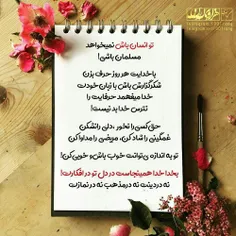 تو انسان باش نمیخواهد
مسلمان باشی!
باخدایت هر روز حرف بزن
شکرگزارش باش با زبان خودت
خدا میفهمد حرفایت را
نترس خدا بد نیست!
حق کسی را نخور ، دلی را نشکن
غمگینی را شاد کن، مریضی را مداوا کن
تو به اندازه ی توانت خوب باش و خوبی کن!
بخدا خدا همینجاست در دل تو در افکارت!
نه در دینت نه در مذهب نه در نمازت